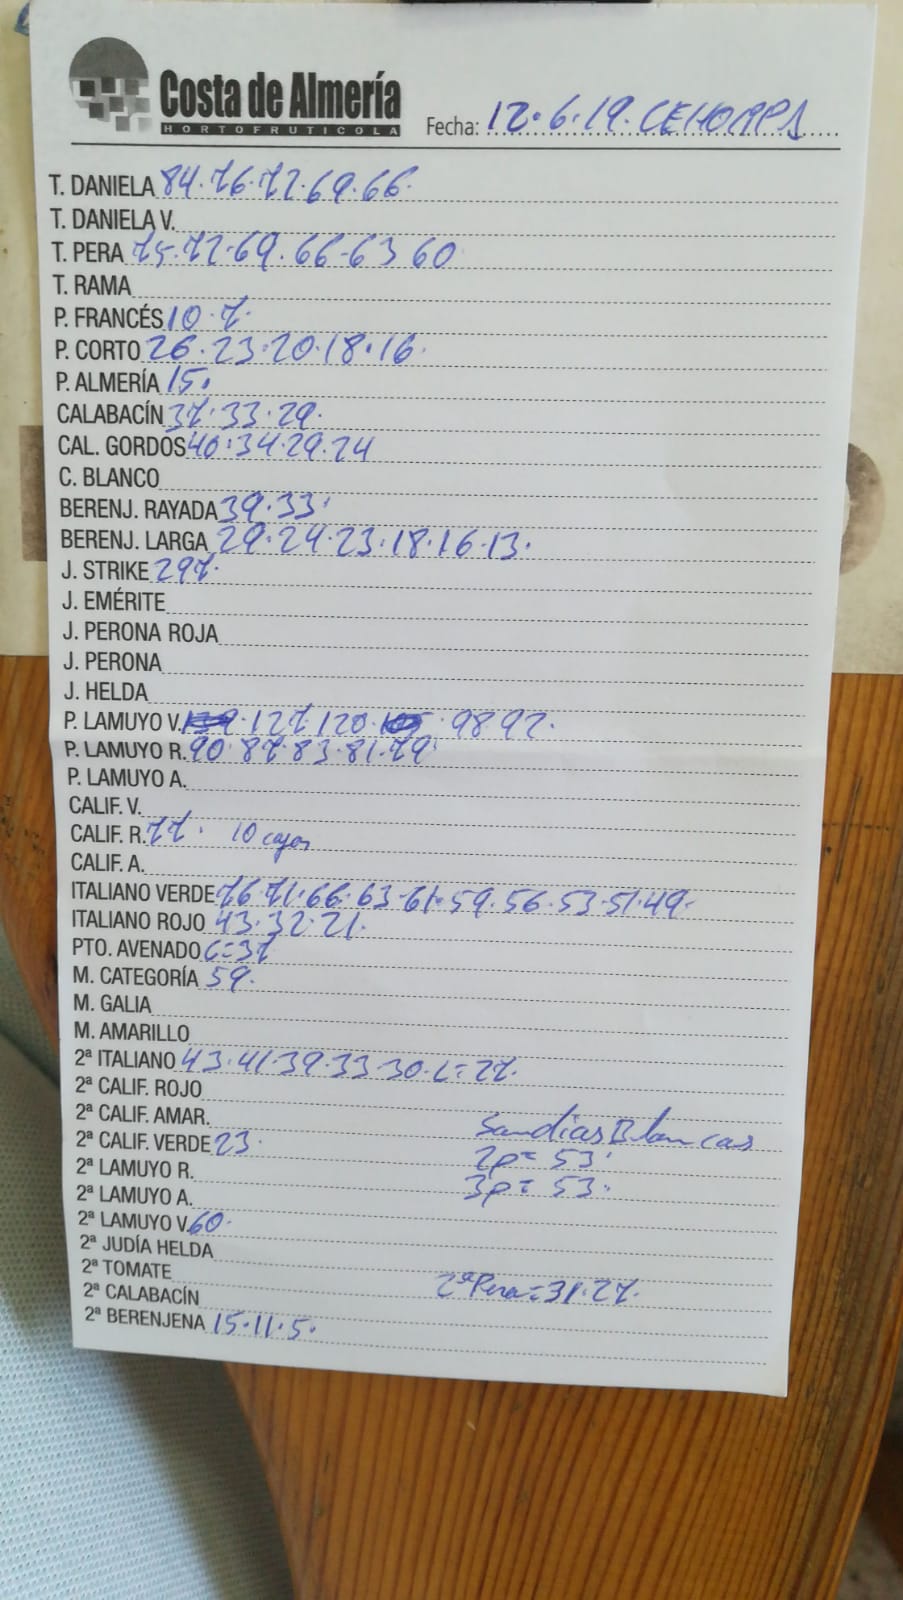 Costa de Almería
HORTOFRUTICOLA
Fecha: 12.6.19. CEHORPA
T. DANIELA 84.76.72.69.66.
T. DANIELA V.
T. PERA 75.72.69.66-63 60
T. RAMA
P. FRANCÉS 10.7.
P. CORTO 26.23.20.18.16.
P. ALMERÍA 15.
CALABACÍN 37.33.29.
CAL. GORDOS 40.34.29.24
C. BLANCO
BERENJ. RAYADA 39.33.
BERENJ. LARGA 29.24.23.18.16.13.
J. STRIKE 297.
J. EMÉRITE
J. PERONA ROJA
J. PERONA
J. HELDA
P. LAMUYO V. .127 120. .98 92.
P. LAMUYO R. 90.87.83.81.79.
P. LAMUYO A.
CALIF. V.
CALIF. R. 77. 10 cajas
CALIF. A.
ITALIANO VERDE 76.71.66.63-61.59.56.53.51.49.
ITALIANO ROJO 43.32.21.
PTO. AVENADO L=37
M. CATEGORÍA 59.
M. GALIA
M. AMARILLO
2ª ITALIANO 43.41.39.33.30.L=27.
2ª CALIF. ROJO
2ª CALIF. AMAR.
Sandias Blancas
2ª CALIF. VERDE 23. 2p= 53.
2ª LAMUYO R. 3p= 53.
2ª LAMUYO A.
2ª LAMUYO V. 60.
2ª JUDÍA HELDA
2ª TOMATE 2ªPera=31.27.
2ª CALABACÍN
2ª BERENJENA 15.11.5.